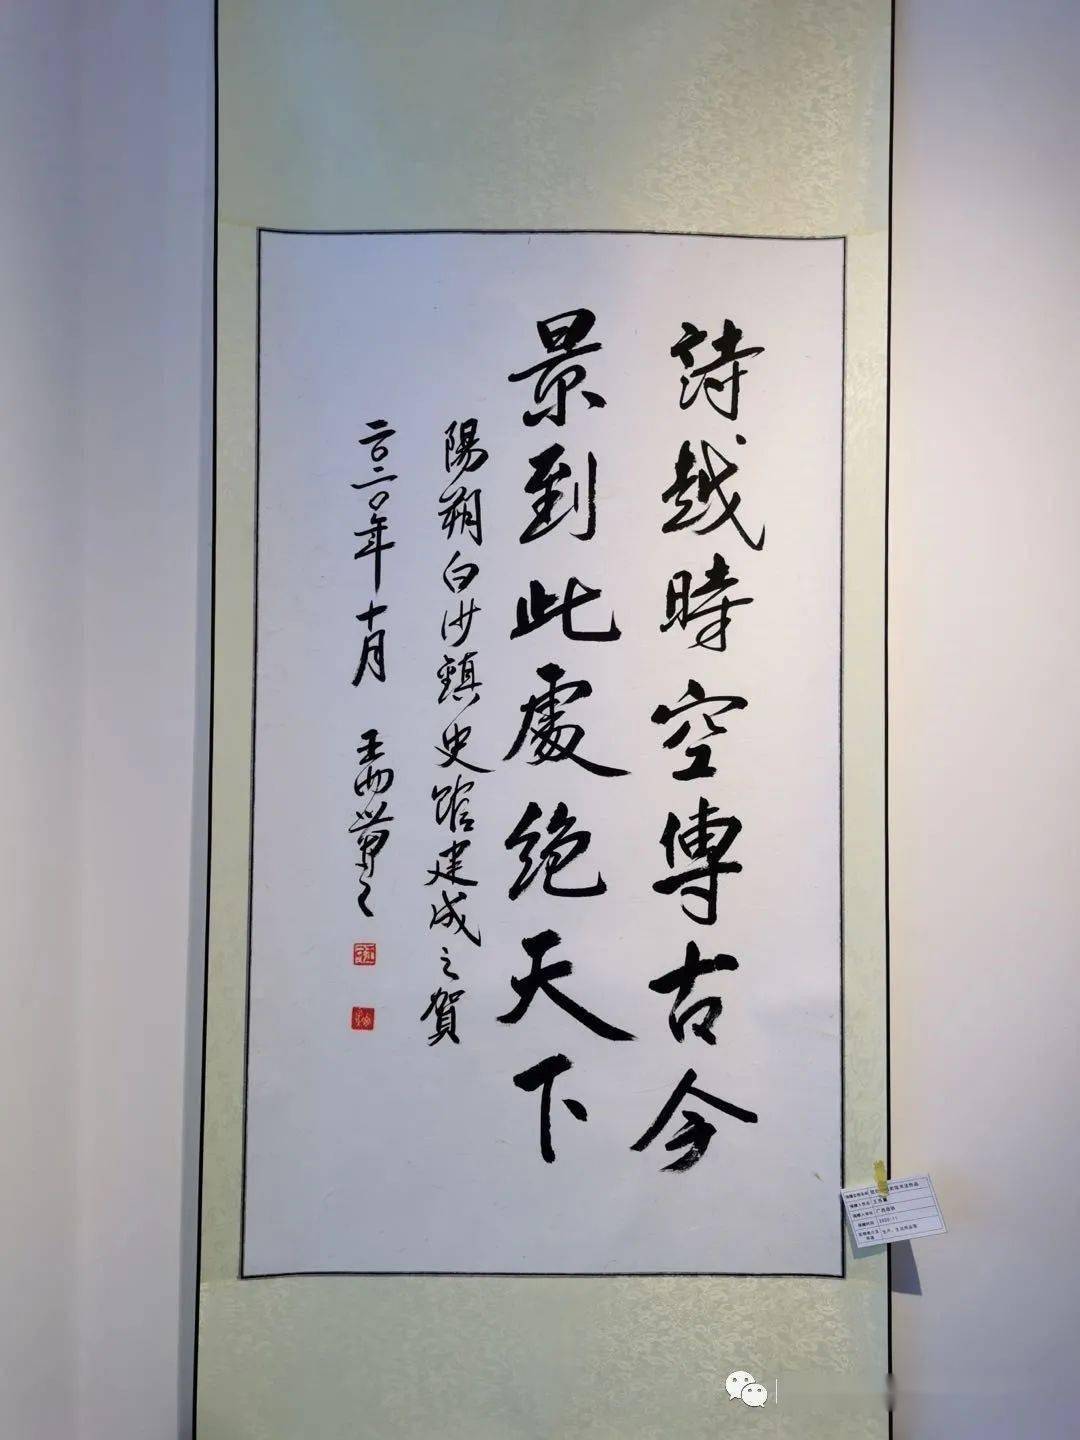 詩越時空傳古今
景到此處絕天下
陽朔白沙鎮史館建成之賀
二〇二〇年十月
2020.11